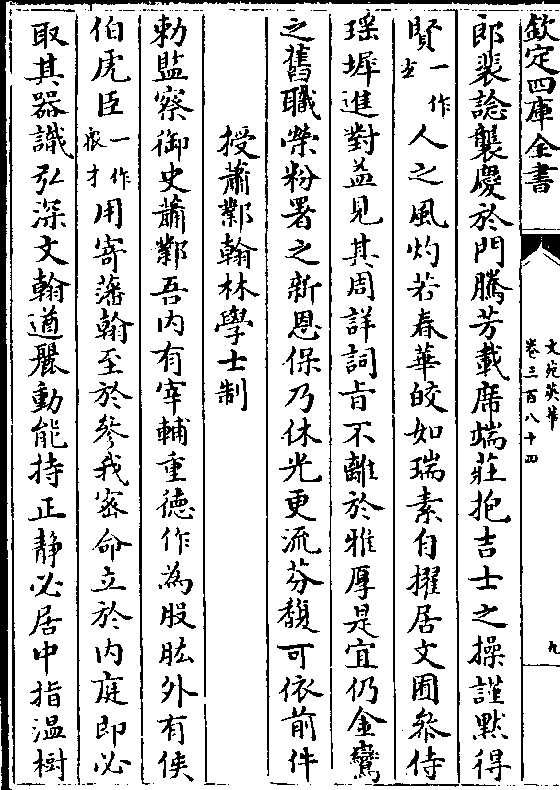 欽定四庫全書
文苑英華
卷三百八十四
九
郎裴諗襲慶於門騰芳載席端莊抱吉士之操謹默得
賢一作至人之風灼若春華皎如瑞素自擢居文囿叅侍
瑶墀進對益見其周詳詞旨不離於雅厚是宜仍金鸞
之舊職榮粉署之新恩保乃休光更流芬馥可依前件
授蕭鄴翰林學士制
勅監察御史蕭鄴吾内有宰輔重德作為股肱外有侯
伯虎臣一作猴才用寄藩翰至於參我密命立於内庭即必
取其器識弘深文翰遒麗動能持正静必居中指温樹